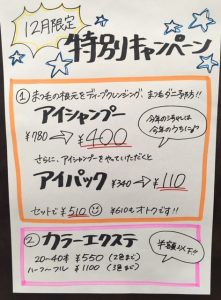 12月限定
特別キャンペーン
① まつ毛の根元をディープクレンジング、まつ毛ダニ予防!!
アイシャンプー
¥780 → ¥400
今年のよごれは
今年のうちに♪
さらに、アイシャンプーをやっていただくと
アイパック ¥340 → ¥110
セットで¥510 ¥610もオトクです!!
② カラーエクステ
20~40本 ¥550 (2色まで)
ハーフ~フル ¥1100 (3色まで)
半額以下!!